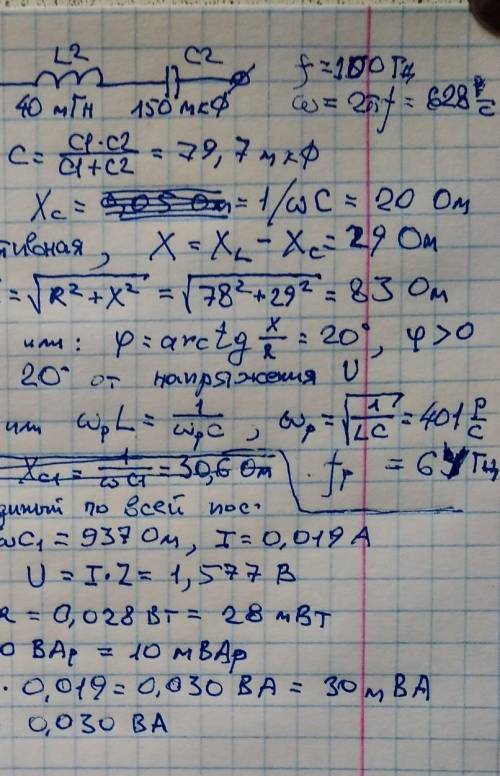 L2 C2
f = 100 Гц
40 мГн 150 мкФ ω = 2πf = 628 р/с
C = C1·C2/C1+C2 = 79,7 мкФ
Xc = = 1/ωC = 20 Ом
тивная, X = XL - Xc = 29 Ом
= √R²+X² = √78²+29² = 83 Ом
или: φ = arctg X/R = 20°, φ>0
20° от напряжения U
или ωрL = 1/ωрC, ωр = √1/LC = 401 р/с
Xc1 = 1/ωC1 = 30,6 Ом fр = 64 Гц
по всей пос.
ωC1 = 937 Ом, I = 0,019 А
U = I·Z = 1,577 В
= 0,028 Вт = 28 мВт
0 ВАр = 10 мВАр
· 0,019 = 0,030 ВА = 30 мВА
0,030 ВА